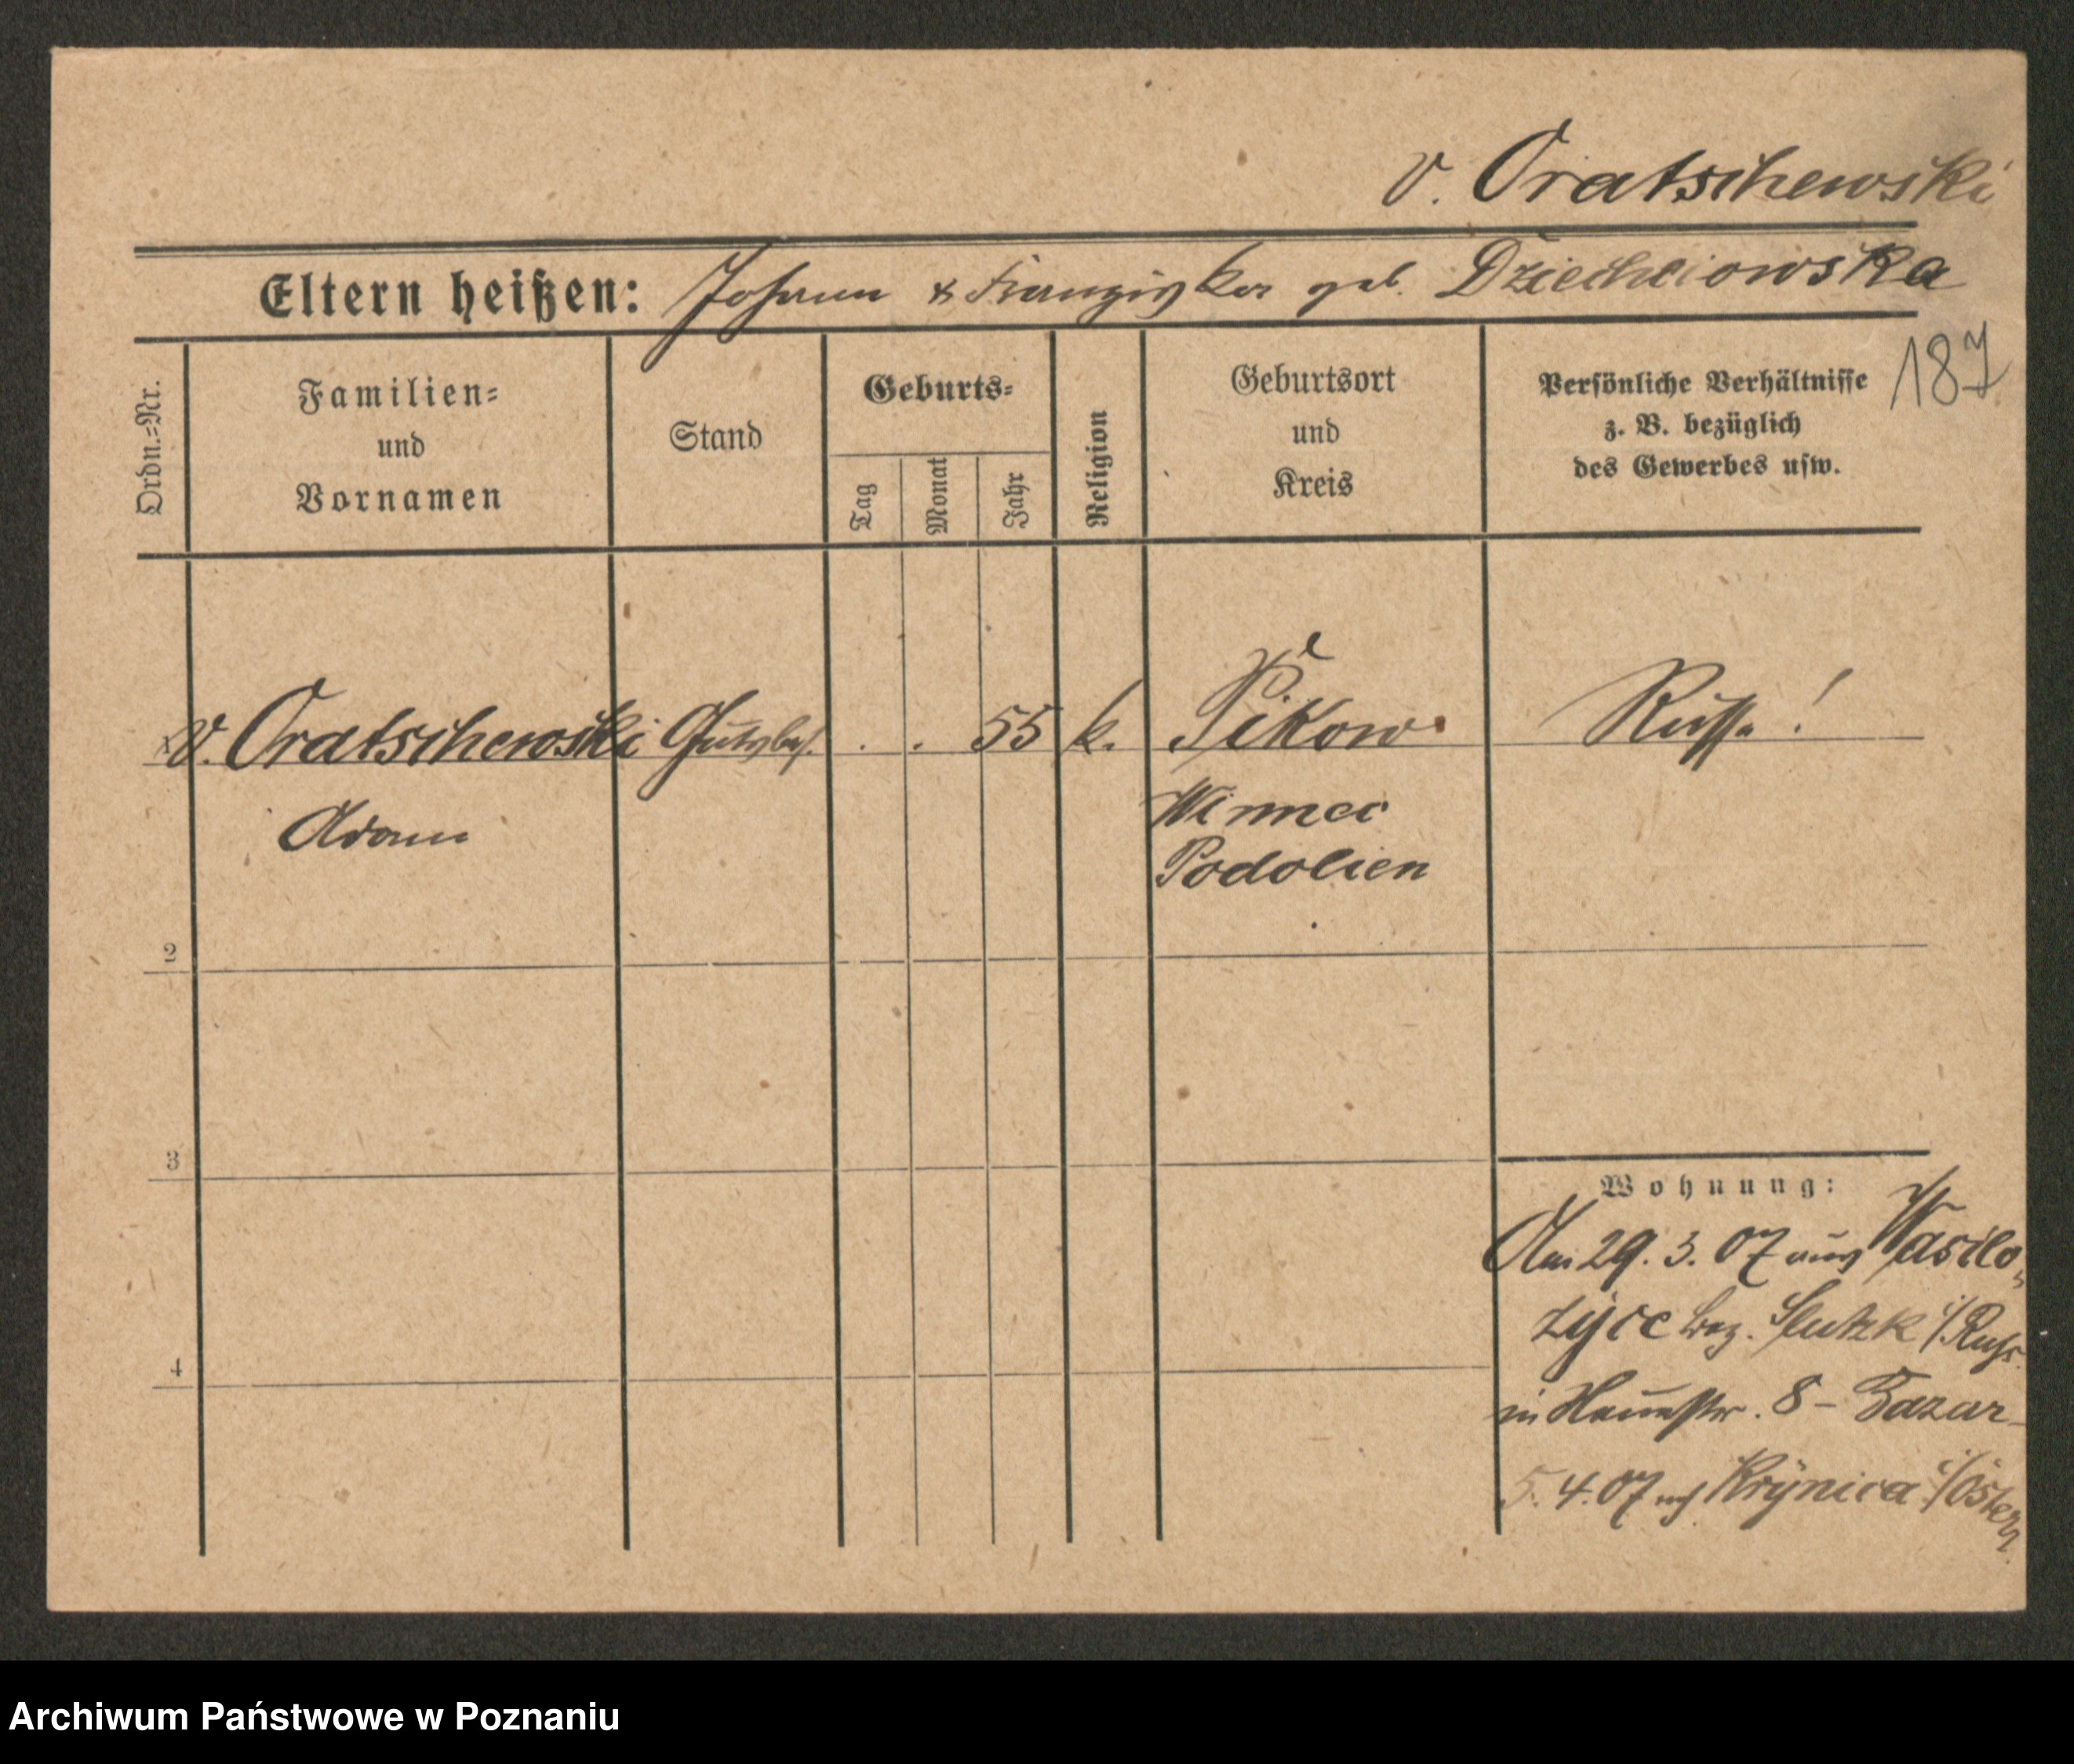 v. Oratschewski
Eltern heißen: Johann & Franziska geb. Dziechciowska
187
Ordn.=Nr.
Familien=
und
Vornamen
Stand
Geburts=
Tag
Monat
Jahr
Religion
Geburtsort
und
Kreis
Persönliche Verhältnisse
z. B. bezüglich
des Gewerbes usw.
v. Oratschewski Gutsbes. . . 55 k. Pikow Russe!
Adam
Winnec
Podolien
2
3
4
Wohnung:
Am 29. 3. 07 aus Wasilo
zyce bez. Slutzk i/Russ.
in Neuestr. 8 - Bazar -
5. 4. 07 Krynica i/Österr.
Archiwum Państwowe w Poznaniu